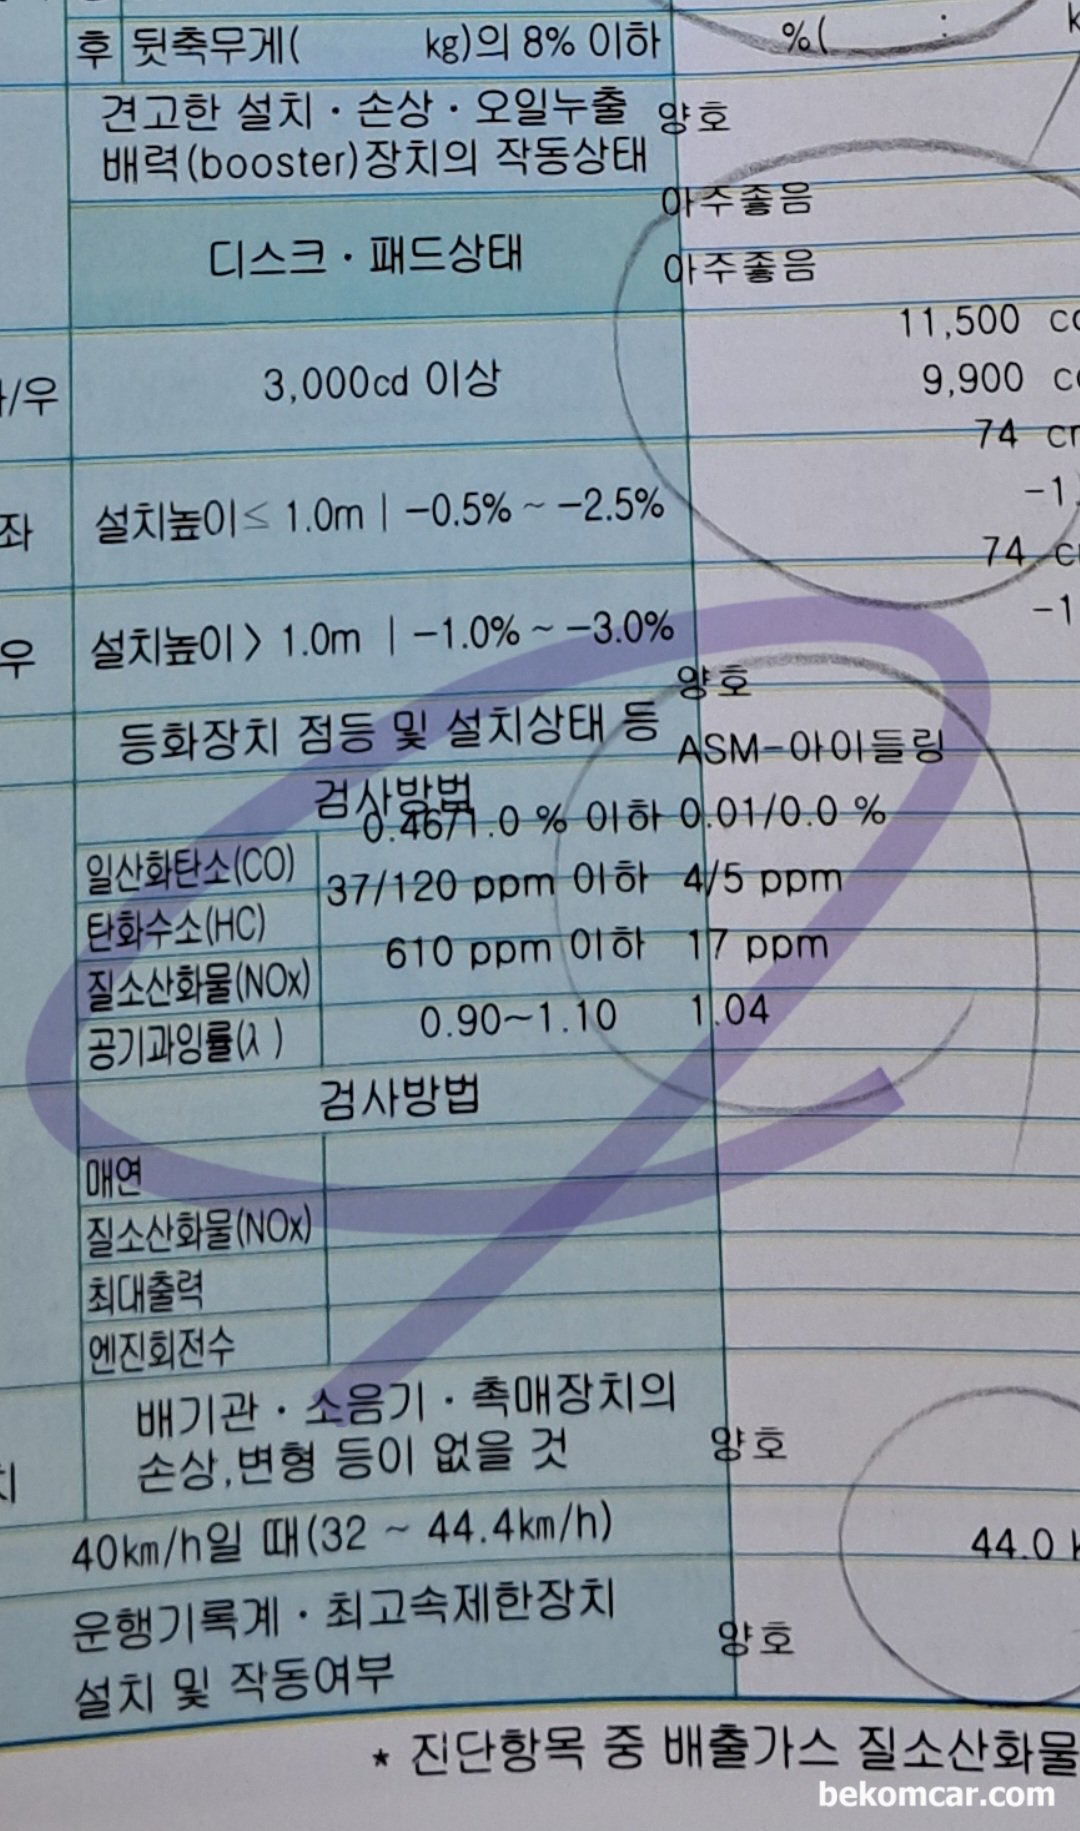 후 뒷축무게( kg)의 8% 이하 %( :
견고한 설치 · 손상 · 오일누출
배력(booster)장치의 작동상태
양호
아주좋음
디스크 · 패드상태
아주좋음
11,500
/우 3,000cd 이상
9,900
74
좌 설치높이≤ 1.0m | -0.5% ~ -2.5%
-1.
74
우 설치높이 > 1.0m | -1.0% ~ -3.0%
-1
양호
등화장치 점등 및 설치상태 등
ASM-아이들링
검사방법
0.46/1.0 % 이하 0.01/0.0 %
일산화탄소(CO)
37/120 ppm 이하 4/5 ppm
탄화수소(HC)
610 ppm 이하 17 ppm
질소산화물(NOx)
0.90~1.10 1.04
공기과잉률(λ)
검사방법
매연
질소산화물(NOx)
최대출력
엔진회전수
배기관 · 소음기 · 촉매장치의
손상,변형 등이 없을 것
양호
40km/h일 때(32 ~ 44.4km/h)
44.0
운행기록계 · 최고속제한장치
설치 및 작동여부
양호
* 진단항목 중 배출가스 질소산화물
bekomcar.com